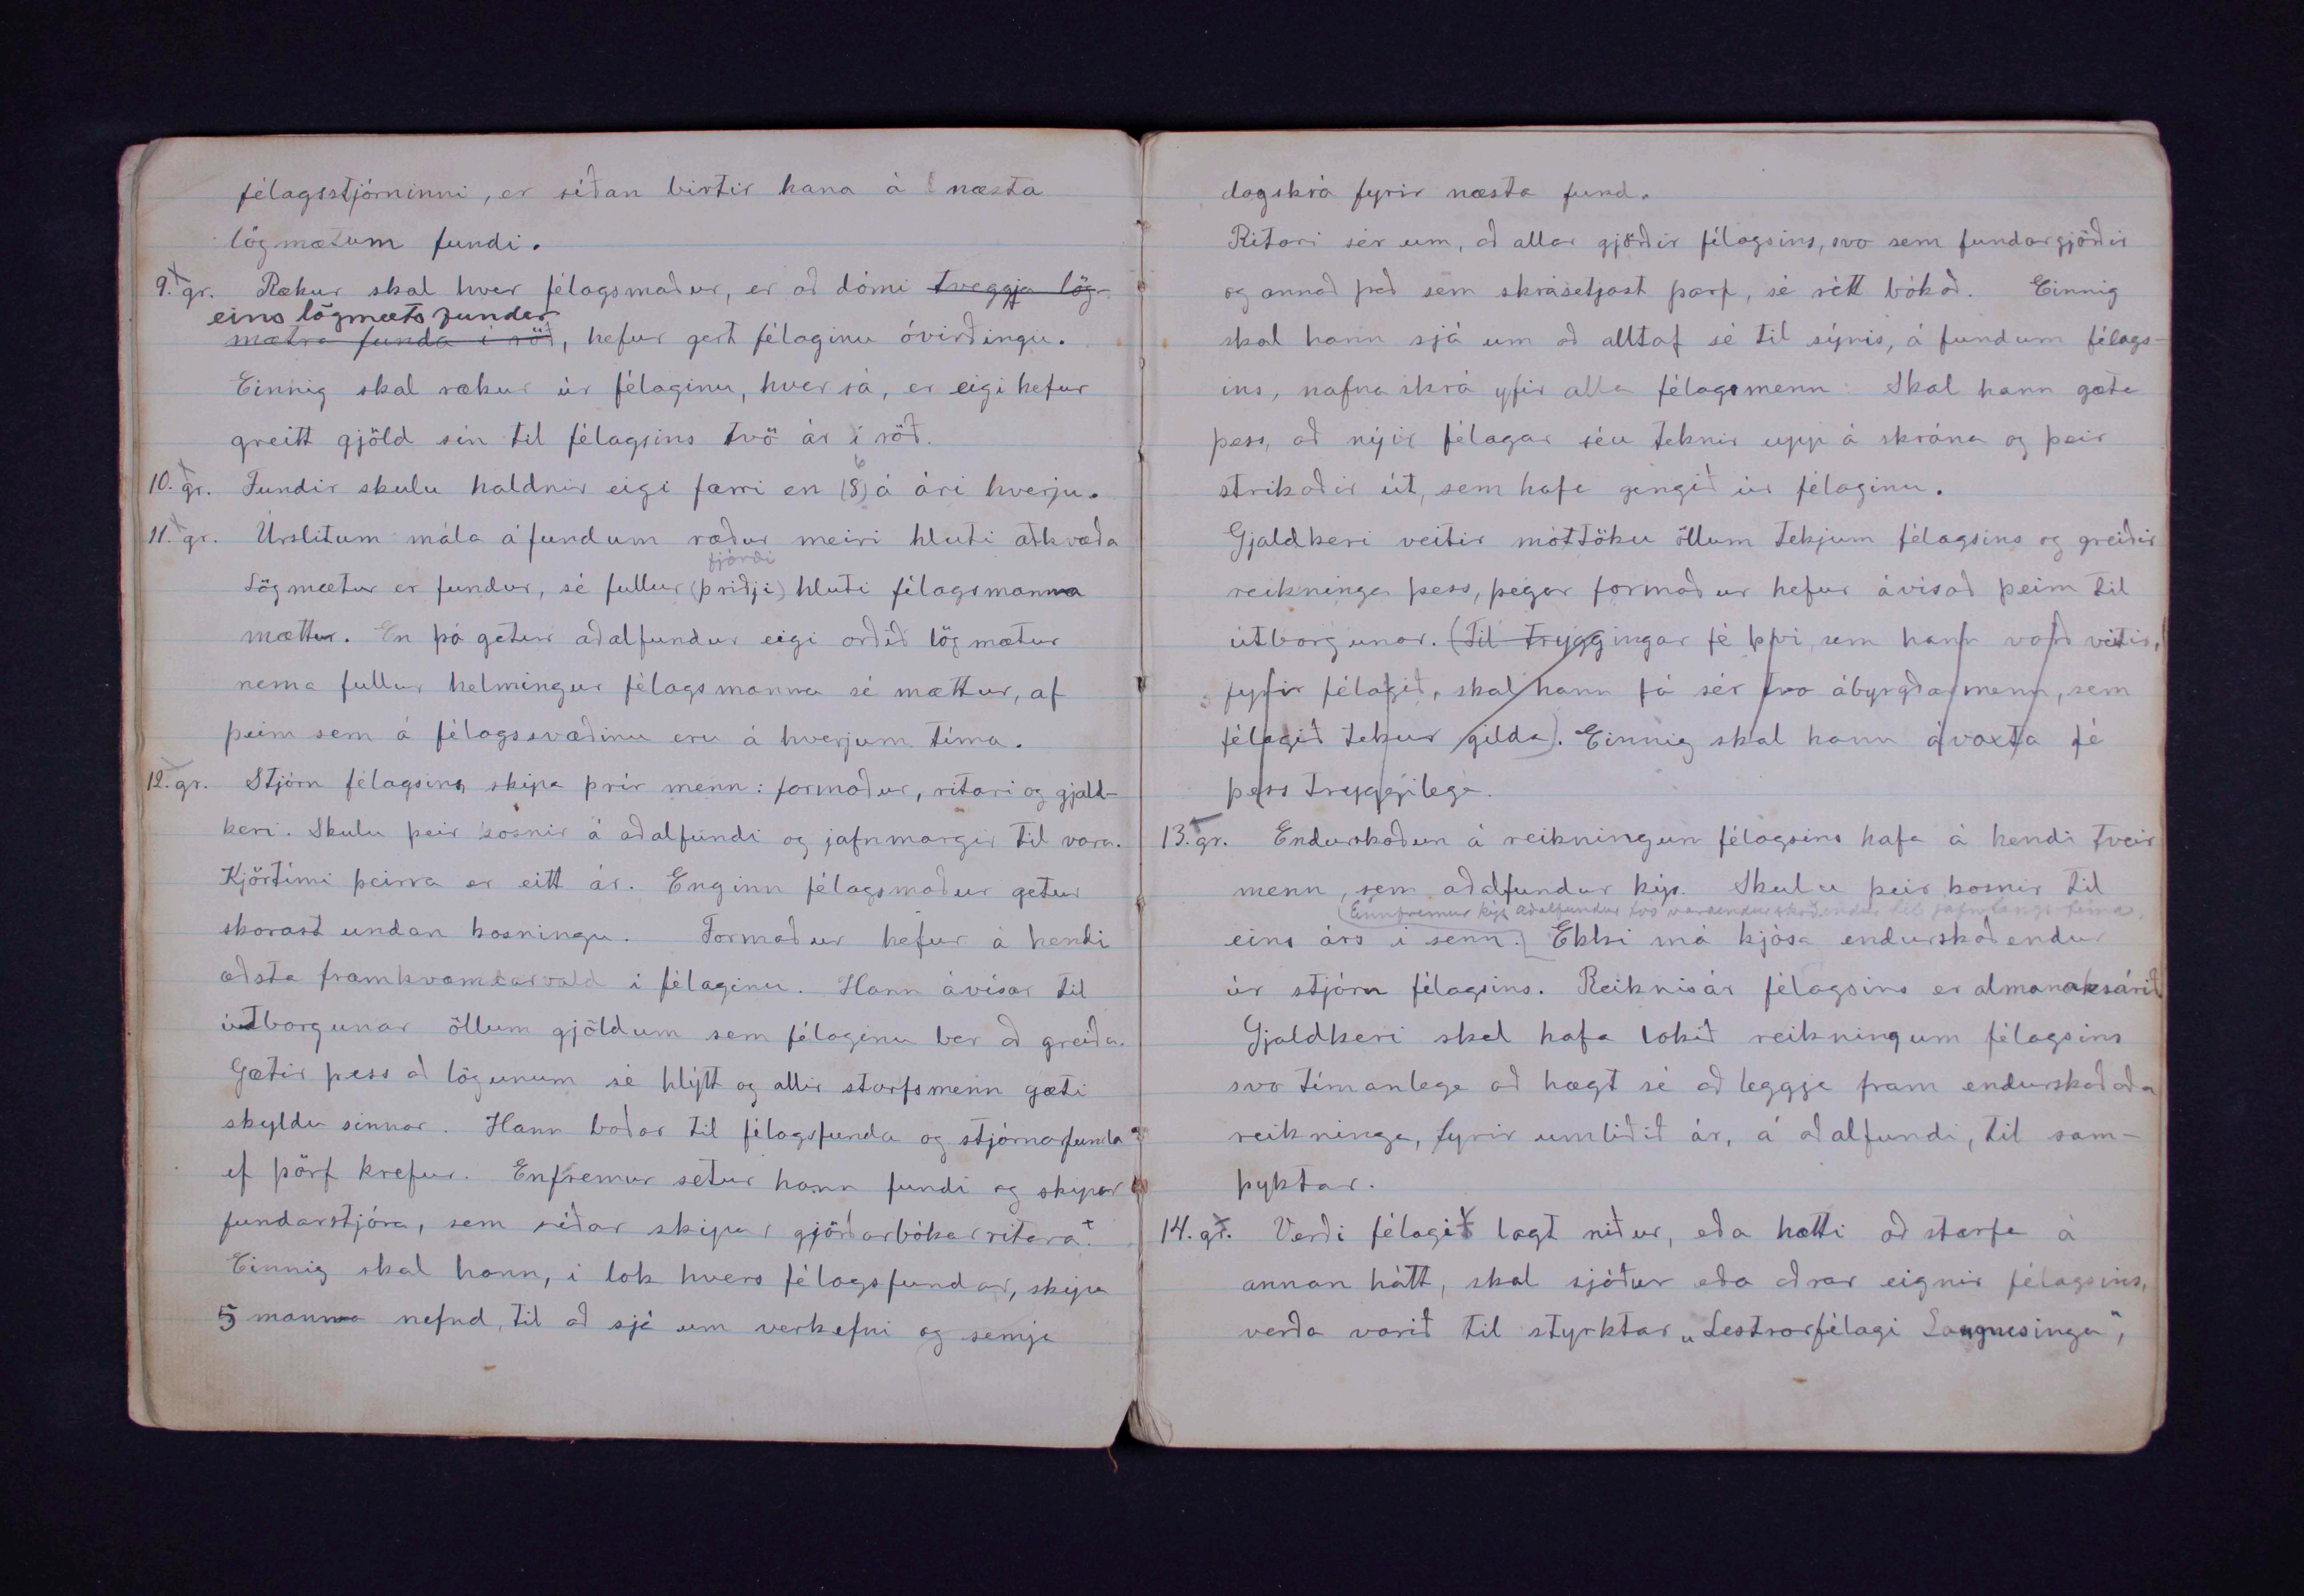 félagsstjórninni, er síðan birtir hana á næsta
lögmætum fundi.
9. gr. Rækur skal hver félagsmaður, er að dómi tveggja lög-
eins lögmæts fundar
mætra funda í röð, hefur gert félaginu óvirðingu.
Einnig skal rækur úr félaginu, hver sá, er eigi hefur
greitt gjöld sín til félagsins tvö ár í röð.
6
10. gr. Fundir skulu haldnir eigi færri en (8) á ári hverju.
11. gr. Úrslitum mála á fundum ræður meiri hluti atkvæða
fjórði
Lögmætur er fundur, sé fullur (þriðji) hluti félagsmanna
mættur. En þó getur aðalfundur eigi orðið lögmætur
nema fullur helmingur félagsmanna sé mættur, af
þeim sem á félagssvæðinu eru á hverjum tíma.
12. gr. Stjórn félagsins skipa þrír menn: formaður, ritari og gjald-
keri. Skulu þeir kosnir á aðalfundi og jafnmargir til vara.
Kjörtími þeirra er eitt ár. Enginn félagsmaður getur
skorast undan kosningu. Formaður hefur á hendi
æðsta framkvæmdarvald í félaginu. Hann ávísar til
útborgunar öllum gjöldum sem félaginu ber að greiða.
Gætir þess að lögunum sé hlýtt og allir starfsmenn gæti
skyldu sinnar. Hann boðar til félagsfunda og stjórnarfunda
ef þörf krefur. Enfremur setur hann fundi og skipar
fundarstjóra, sem síðar skipar gjörðarbókarritara.
Einnig skal hann, í lok hvers félagsfundar, skipa
5 manna nefnd, til að sjá um verkefni og semja
dagskrá fyrir næsta fund.
Ritari sér um, að allar gjörðir félagsins, svo sem fundargjörðir
og annað það sem skrásetjast þarf, sé rétt bókað. Einnig
skal hann sjá um að alltaf sé til sýnis, á fundum félags-
ins, nafnaskrá yfir alla félagsmenn. Skal hann gæta
þess, að nýir félagar séu teknir upp á skrána og þeir
strikaðir út, sem hafa gengið úr félaginu.
Gjaldkeri veitir móttöku öllum tekjum félagsins og greiðir
reikninga þess, þegar formaður hefur ávísað þeim til
útborgunar. (Til tryggingar fé því, sem hann vörð veitir,
fyrir félagið, skal hann fá sér tvo ábyrgðarmenn, sem
félagið tekur gilda). Einnig skal hann ávaxta fé
þess tryggilega.
13. gr. Endurskoðun á reikningum félagsins hafa á hendi tveir
menn, sem aðalfundur kýs. Skulu þeir kosnir til
(Ennfremur kýs aðalfundur tvo varaendurskoðendur til jafnlangs tíma.
eins árs í senn.) Ekki má kjósa endurskoðendur
úr stjórn félagsins. Reiknisár félagsins er almanaksárið
Gjaldkeri skal hafa lokið reikningum félagsins
svo tímanlega að hægt sé að leggja fram endurskoðaða
reikninga, fyrir umliðið ár, á aðalfundi, til sam-
þyktar.
14. gr. Verði félagið lagt niður, eða hætti að starfa á
annan hátt, skal sjóður eða aðrar eignir félagsins,
verða varið til styrktar „Lestrarfélagi Langnesinga",